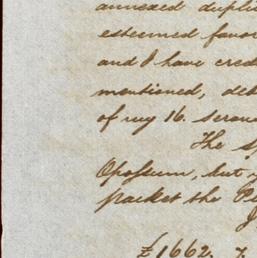 annexed dupli
esteemed favo
and I have cred
mentioned, deb
of my 16.
The s
Opossum, but
packet the Pe
£1662. 7.